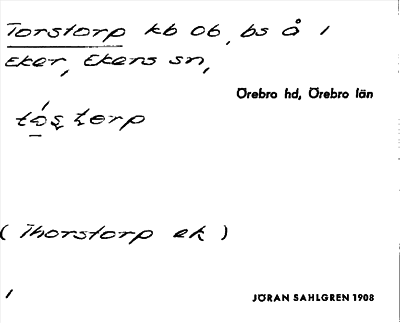 Torstorp kb Ob, bs Å 1
Eker, Ekers sn,
Örebro hd, Örebro län
( Thorstorp ek )
1
JÖRAN SAHLGREN 1908